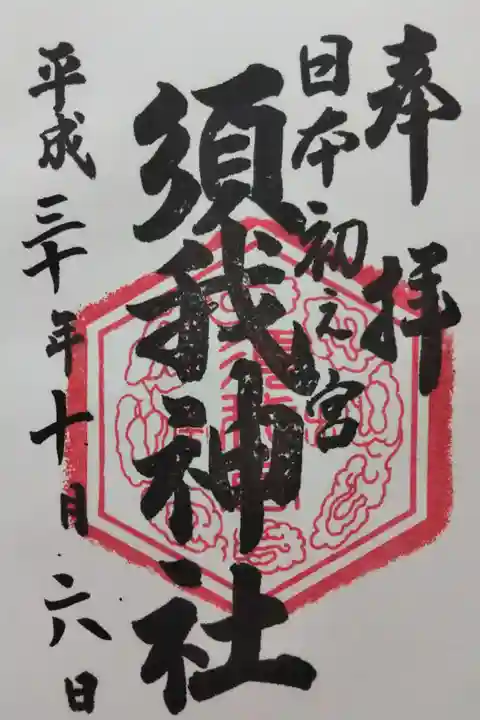 奉拝
日本初之宮
須我神社
平成三十年十月二六日